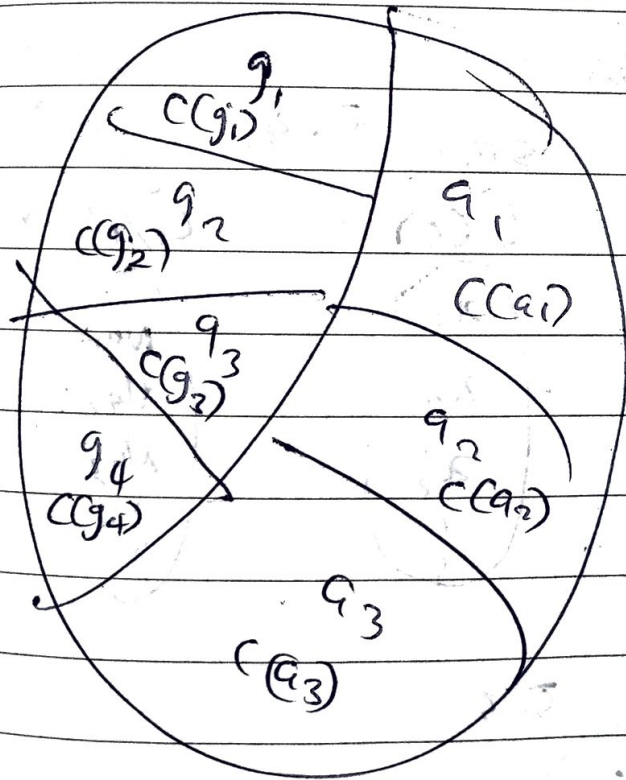 g₁
C(g₁)
g₂
C(g₂)
g₃
C(g₃)
g₄
C(g₄)
a₁
C(a₁)
a₂
C(a₂)
a₃
C(a₃)